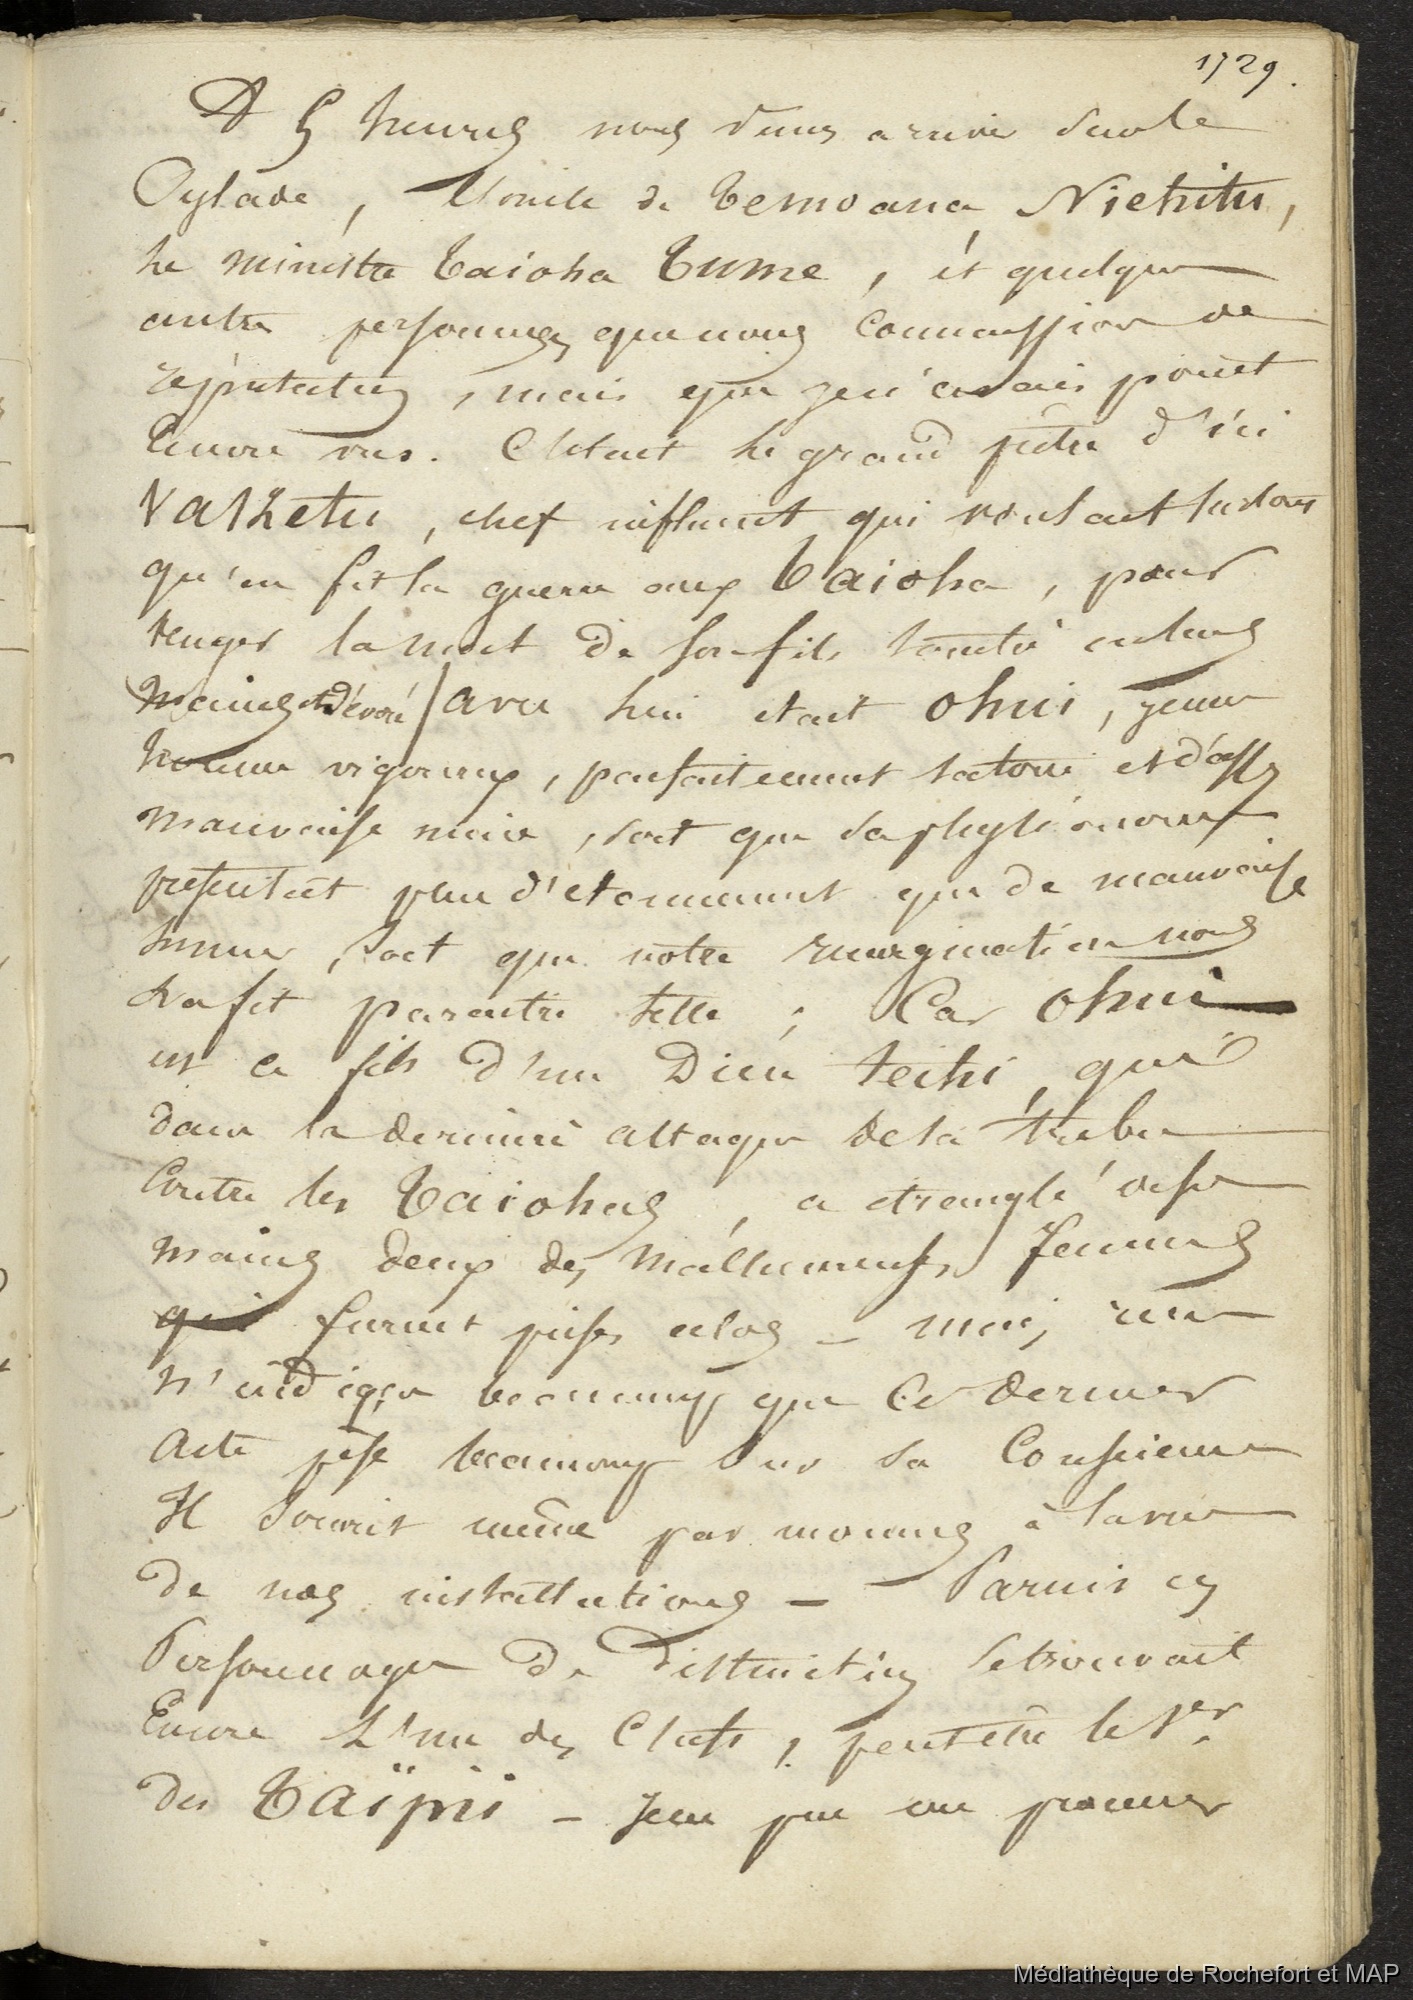 1729.
A 5 heures nous vimes arriver sur le
Pylade, l'oncle de Temoana, Niehitu,
le ministre Taioha Tume, et quelques
autres personnes que nous connaissions de
réputation, mais que je n'avais point
encore vus. C'était le grand prêtre d'ici
Vaihetu, chef influent qui voulait
qu'on fit la guerre aux Taioha, pour
venger la mort de son fils tombé en leurs
mains et dévoré / avec lui était Ohui, jeune
homme vigoureux, parfaitement tatoué et d'assez
mauvaise mine, soit que sa physionomie
présentât plus d'étonnement que de mauvaise
humeur, soit que notre imagination nous
la fit paraître telle ; Car Ohui
est ce fils d'un Dieu teihi, qui
dans la dernière attaque de sa tribu
contre les Taiohas, a étranglé de ses
mains deux des malheureuses femmes
qui furent prises alors _ mais, rien
n'indique beaucoup que ce dernier
acte pèse beaucoup sur sa conscience
Il sourit même par moments à la vue
de nos installations _ Parmis ces
Personnages de distinction se trouvait
Encore l'un des Chefs, peut être le 1er
des Taïpii _ Je ne pus me